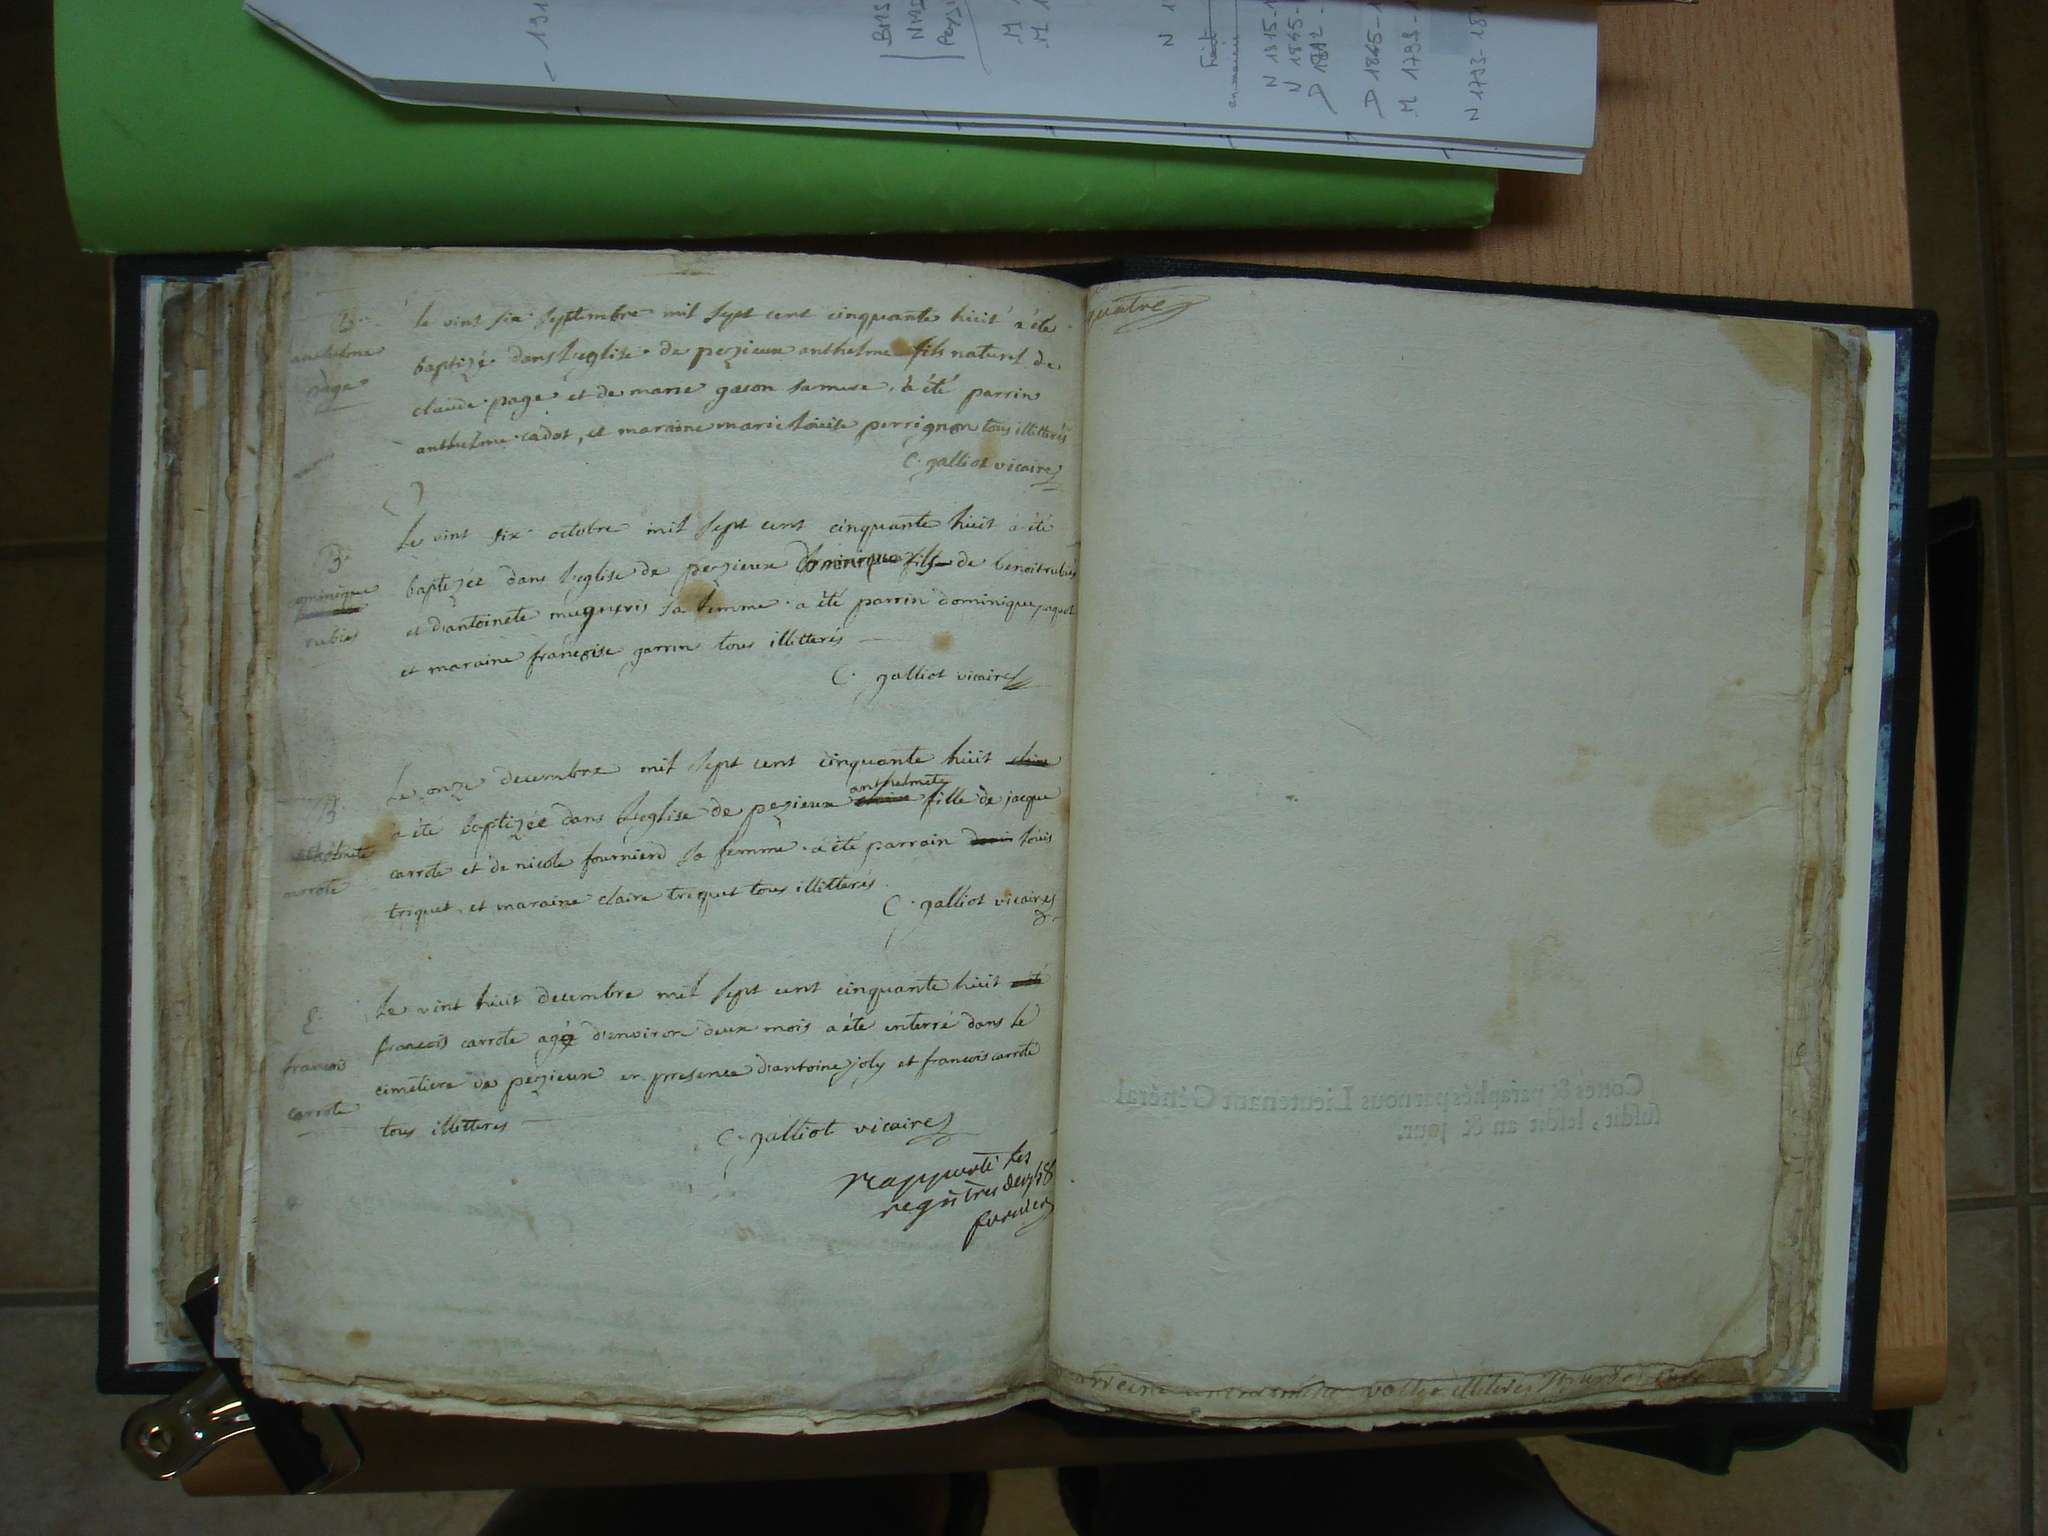 - 191
BMS
NMD
M
M
N 1
Fiait
en mairie
N 1815-1
N 1845-
D 1812-
D 1845-1
M 1793-
N 1793-181
B.
anthelme
page
le vint six septembre mil sept cent cinquante huit a été
baptizé dans l'eglise de pezieux anthelme fils naturel de
claude page et de marie gacon sa mere. a été parrin
anthelme cadot, et maraine marie loüise perrignon tous illitterés
C. galliot vicaire
B.
ominique
rubier
Le vint six octobre mil sept cent cinquante huit a été
baptizée dans l'eglise de pezieux dominique fils de benoit rubier
et d'antoinete sa femme. a été parrin dominique paquet
et maraine françoise garrin tous illitterés
C. galliot vicaire
B.
anthelmete
carrote
Le onze decembre mil sept cent cinquante huit claire
anthelmete
a été baptizée dans l'eglise de pezieux claire fille de jacque
carrote et de nicole fournierd sa femme. a été parrain loüis
triquet, et maraine claire triquet tous illitterés.
C. galliot vicaire
E.
francois
carrote
Le vint huit decembre mil sept cent cinquante huit été
francois carrote agé d'environ deux mois a été enterré dans le
cimetiere de pezieux en presence d'antoine joly et francois carrote
tous illitteres
C. galliot vicaire
rapporté les
registres de 1758
quatre
Cottés & paraphés par nous Lieutenant Général
susdit, lesdit an & jour.